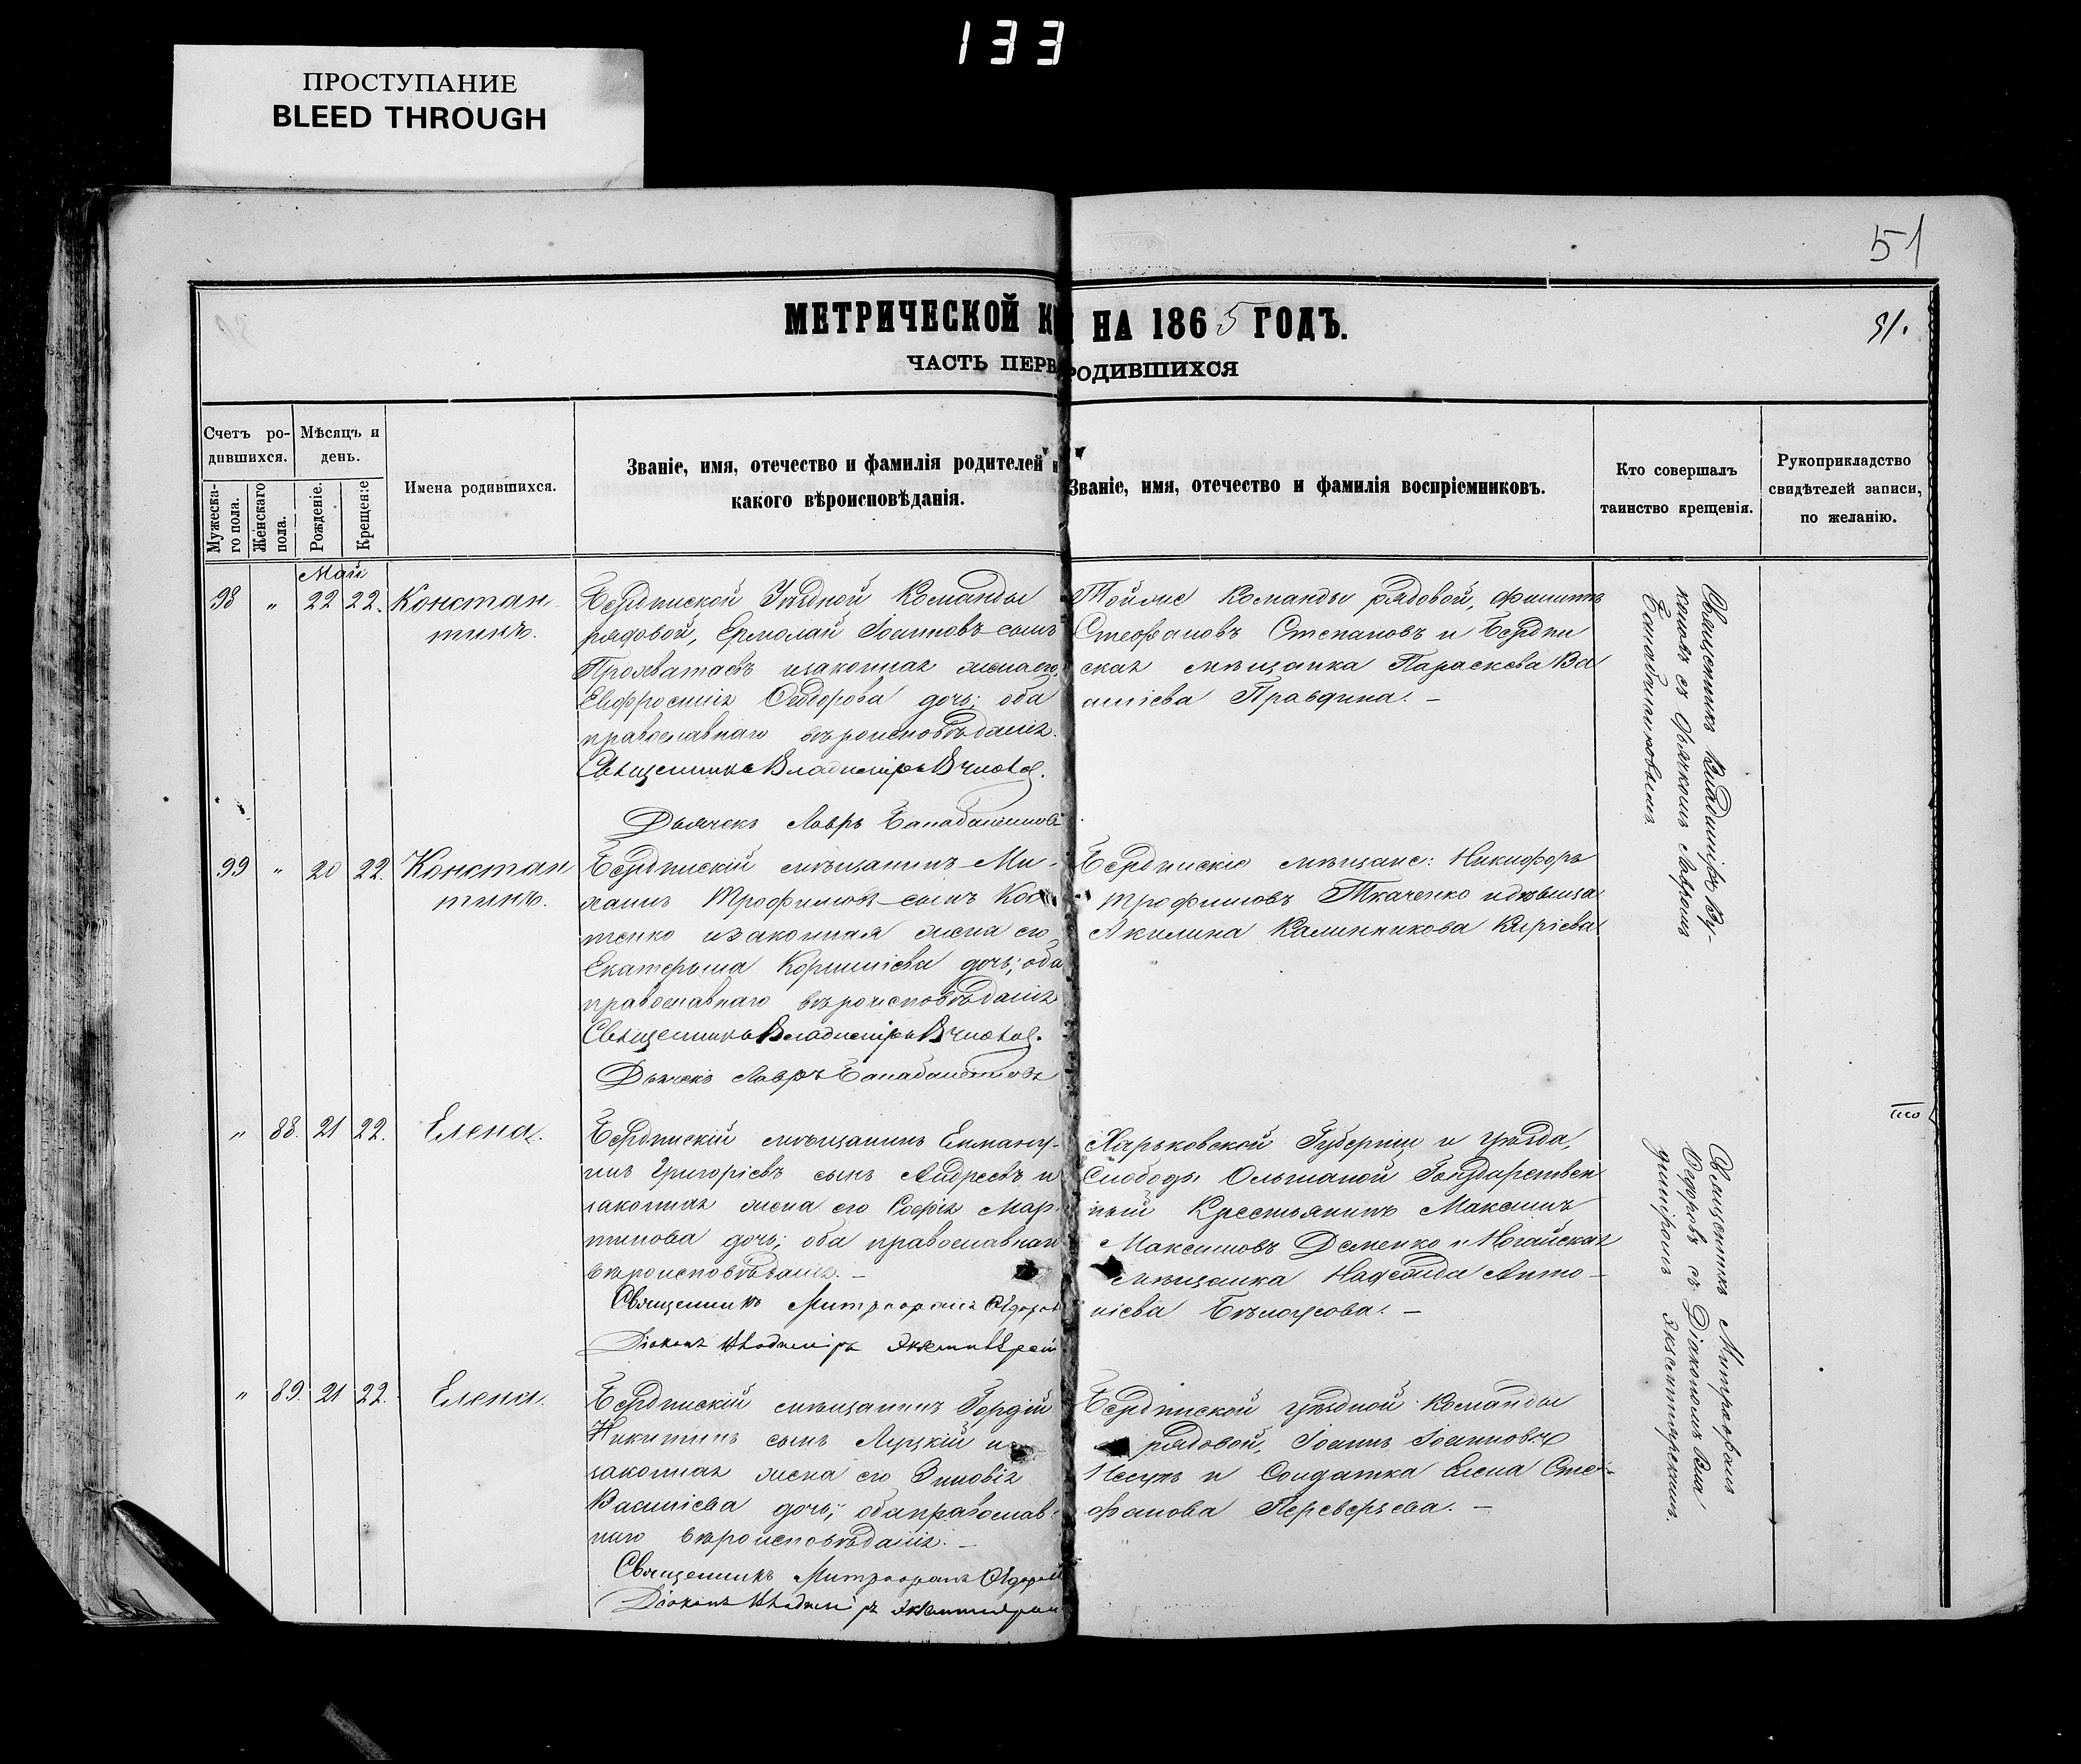 133
ПРОСТУПАНИЕ
BLEED THROUGH
51
МЕТРИЧЕСКОЙ К НА 1865 ГОДЪ.
51.
ЧАСТЬ ПЕРВ РОДИВШИХСЯ
Счетъ ро-
дившихся.
Мужеска-
го пола.
Женскаго
пола.
Мѣсяцъ и
день.
Рожденіе.
Крещеніе
Имена родившихся.
Званіе, имя, отечество и фамилія родителей и
какого вѣроисповѣданія.
Званіе, имя, отечество и фамилія воспріемниковъ.
Кто совершалъ
таинство крещенія.
Рукоприкладство
свидѣтелей записи,
по желанію.
Май
98 " 22 22. Констан
тинъ.
Бердянской Уѣздной Команды
рядовой, Ермолай Іоанновъ сынъ
Прохватаевъ изаконная жена его,
Евфросинія Ѳеодорова дочь; оба
православнаго вѣроисповѣданія.
Священникъ Владиміръ
Дьячекъ Лавръ
Тойже Команды рядовой, Филиппъ
Стефановъ Степановъ и Бердян
ская мѣщанка Параскева Ва
силіева Правдина. –
Священникъ Владиміръ Ву-
коловъ съ Дьячкомъ Лавромъ
99 " 20 22. Констан
тинъ.
Бердянскій мѣщанинъ Ми-
хаилъ Трофимовъ сынъ
тенко изаконная жена его,
Екатерина Корниліева дочь; оба
православнаго вѣроисповѣданія
Священникъ Владиміръ
Дьячекъ Лавръ
Бердянскіе мѣщане: Никифоръ
Трофимовъ Ткаченко идѣвица
Акилина Калинникова Киріева
" 88. 21 22. Елена.
Бердянскій мѣщанинъ Еммануи-
илъ Григоріевъ сынъ Андреевъ и
законная жена его Софія Мар-
тинова дочь; оба православнаго
вѣроисповѣданія. –
Священникъ Митрофанъ Ѳедоров
Діаконъ Владиміръ
Харьковской Губерніи и уѣзда,
Слободы Ольшаной Государствен
ный Крестьянинъ Максимъ
Максимовъ Деменко и Ногайская
мѣщанка Надежда Анто-
ніева Бѣлоусова. –
Священникъ Митрофанъ
Ѳедоровъ съ Діакономъ Вла
диміромъ Экземплярскимъ.
" 89. 21 22. Елена.
Бердянскій мѣщанинъ Гордій
Никитинъ сынъ и
законная жена его Зиновія
Василіева дочь; оба православ-
наго вѣроисповѣданія. –
Священникъ Митрофанъ Ѳедоров
Діаконъ Владиміръ
Бердянской уѣздной Команды
рядовой, Іоаннъ Іоанновъ
и Солдатка Елена Сте-
фанова Переверзева. –